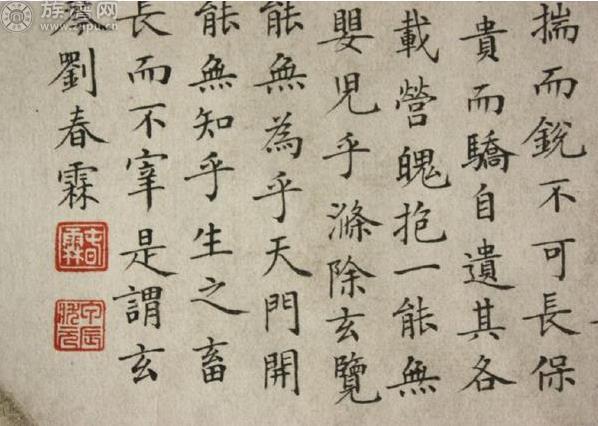 揣而銳不可長保
貴而驕自遺其咎
載營魄抱一能無
嬰兒乎滌除玄覽
能無為乎天門開
能無知乎生之畜
長而不宰是謂玄
劉春霖
春霖
甲辰狀元
族譜网
www.zupu.cn